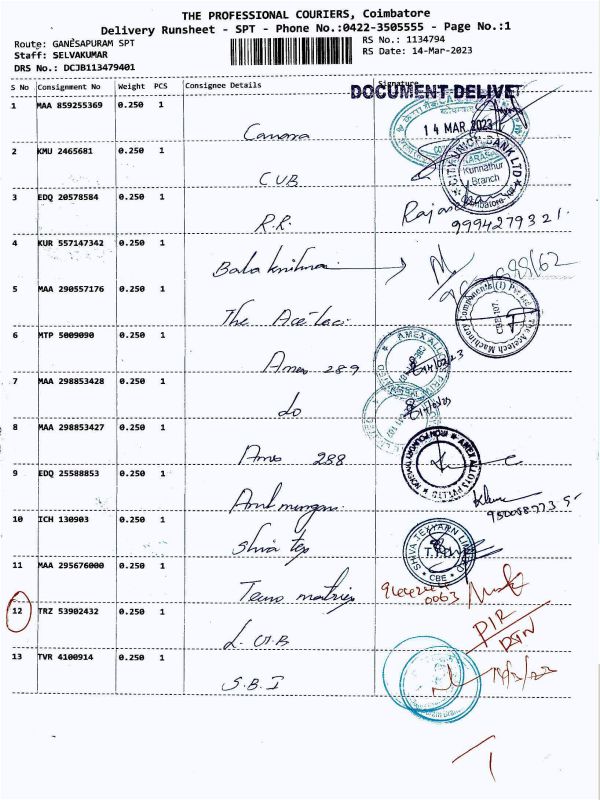 THE PROFESSIONAL COURIERS, Coimbatore
Delivery Runsheet - SPT - Phone No.:0422-3505555 - Page No.:1
Route: GANESAPURAM SPT
Staff: SELVAKUMAR
DRS No.: DCJB113479401
RS No.: 1134794
RS Date: 14-Mar-2023
S No Consignment No Weight PCS Consignee Details Signature
DOCUMENT DELIVE
1 MAA 859255369 0.250 1 Canara
14 MAR 2023
2 KMU 2465681 0.250 1 CUB
CITY UNION BANK LTD
Kunnathur
Branch
3 EDQ 20578584 0.250 1 R.R.
9994279321.
4 KUR 557147342 0.250 1 Balakrishnan
5 MAA 290557176 0.250 1 The Acetec
The Acetech Machinery Components (I) Pvt Ltd
6 MTP 5009090 0.250 1 Amex 289
AMEX ALLOYS
7 MAA 298853428 0.250 1 do
8 MAA 298853427 0.250 1 Amex 288
AMEX ALLOYS PVT LTD
9 EDQ 25588853 0.250 1 Arulmurugan
10 ICH 130903 0.250 1 Shiva tex
SHIVA TEXYARN LIMITED
CBE
11 MAA 295676000 0.250 1 Tecno matrix
0063
12 TRZ 53902432 0.250 1 L.V.B
13 TVR 4100914 0.250 1 S.B.I